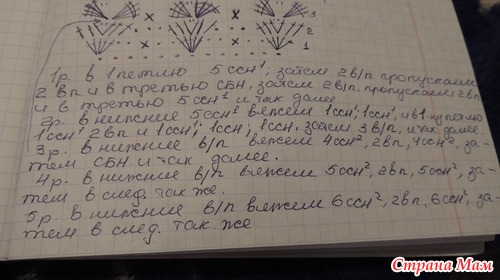 3
2
1
1р. в 1 петлю 5 ссн¹, затем 2 в/п пропускаем
2 вп и в третью СБН, затем 2 в/п, пропускаем 2 вп
и в третью 5 ссн² и так далее.
2р. в нижние 5 ссн² вяжем 1 ссн¹, 1 ссн¹, и в 1-ну петлю
1 ссн¹ 2 вп и 1 ссн¹, 1 ссн¹, 1 ссн, затем 3 в/п, и так далее
3р. в нижние в/п вяжем 4 ссн², 2 вп, 4 ссн², за-
тем СБН и так далее.
4р. в нижние в/п вяжем 5 ссн², 2 вп, 5 ссн², за-
тем в след. так же.
5р. в нижние в/п вяжем 6 ссн², 2 вп, 6 ссн², за-
тем в след. так. же
Страна Мам